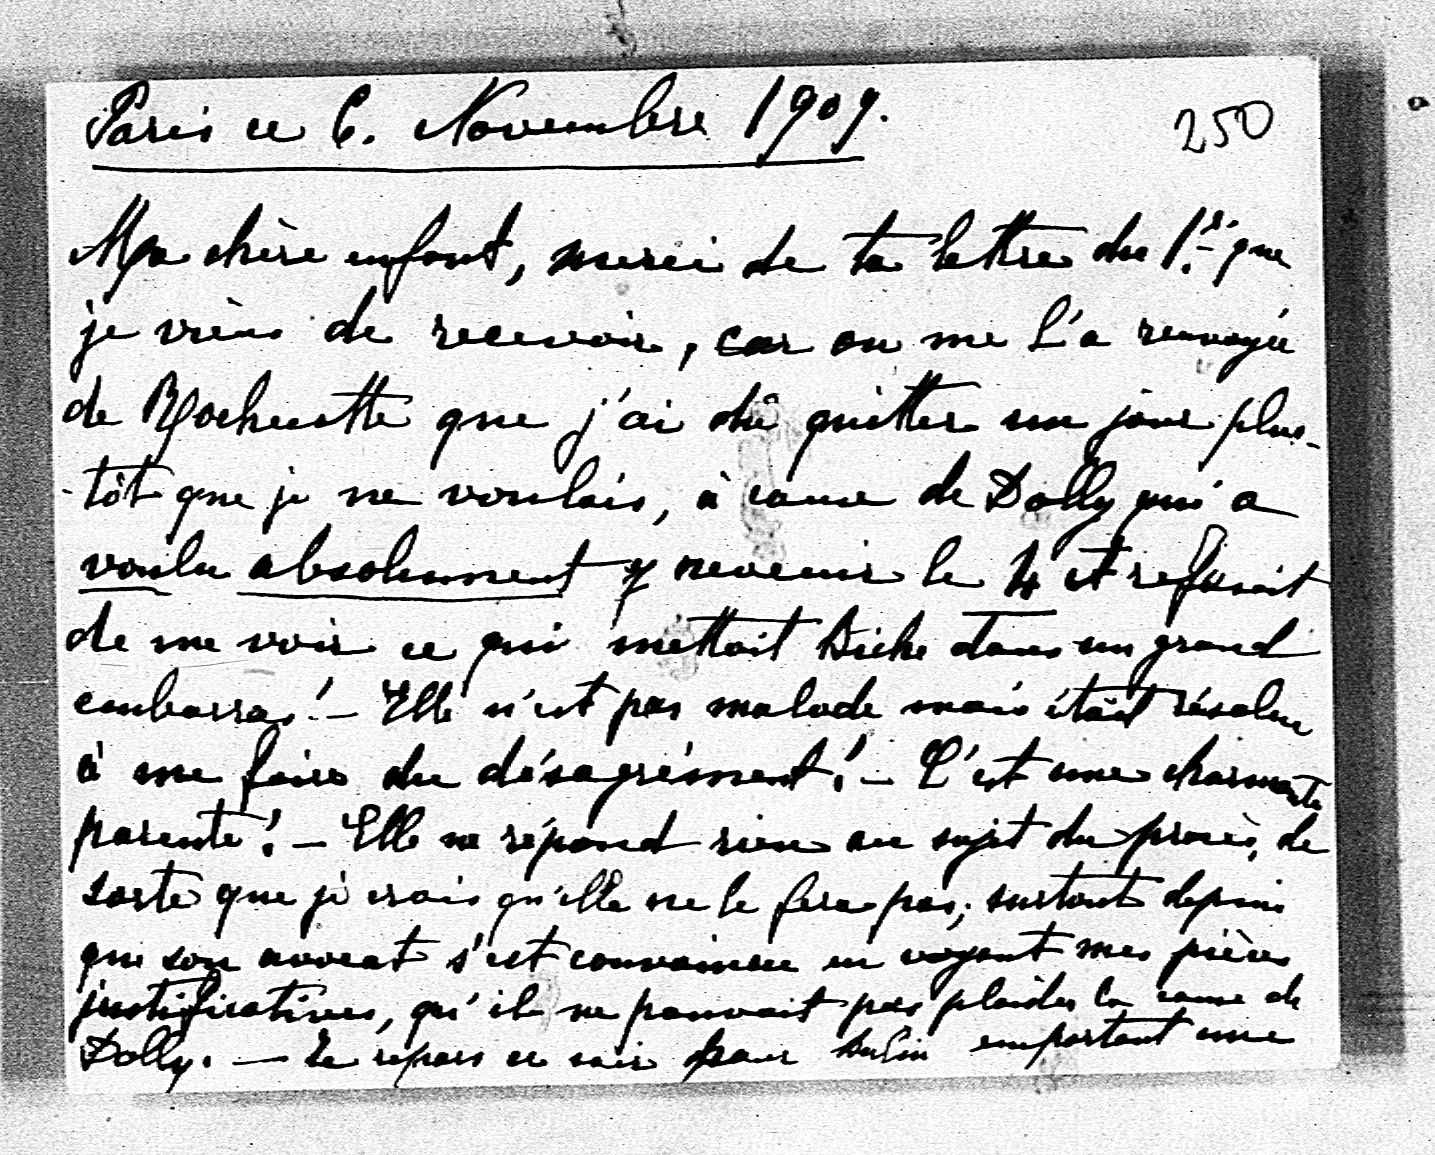 Paris ce 6. Novembre 1909.
250
Ma chère enfant, merci de ta lettre du 1.er que
je viens de recevoir, car on me l'a renvoyée
de Rochecotte que j'ai dû quitter un jour plus-
-tôt que je ne voulais, à cause de Dolly qui a
voulu absolument y revenir le 4 et refusait
de me voir ce qui mettait dans un grand
embarras! — Elle n'est pas malade mais était résolue
à me faire du désagrément! — C'est une charmante
parente! — Elle ne répond rien au sujet du procès, de
sorte que je crois qu'elle ne le fera pas, surtout depuis
que son avocat s'est convaincu en voyant mes pièces
justificatives, qu'il ne pouvait pas plaider la cause de
Dolly. — Je repars ce soir pour Berlin emportant une